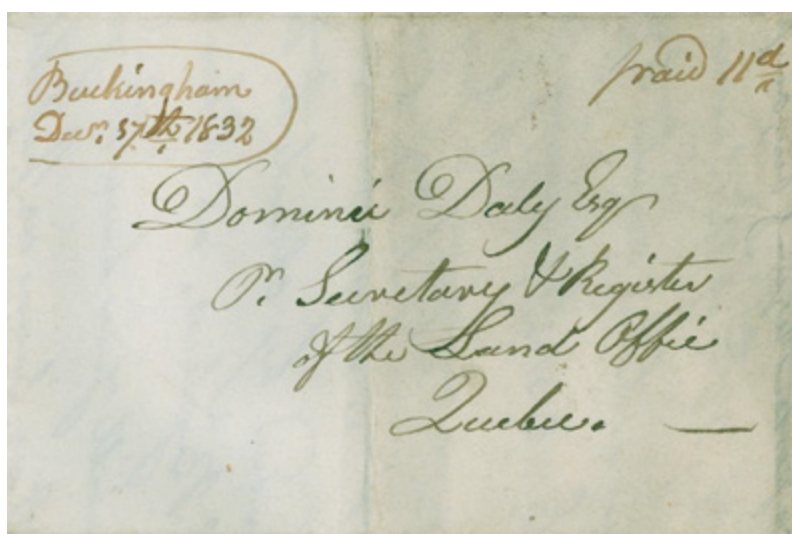 Buckingham
Decr. 17th 1832
paid 11d
Dominic Daly Esqr
Pr. Secretary & Register
of the Land Office
Quebec.